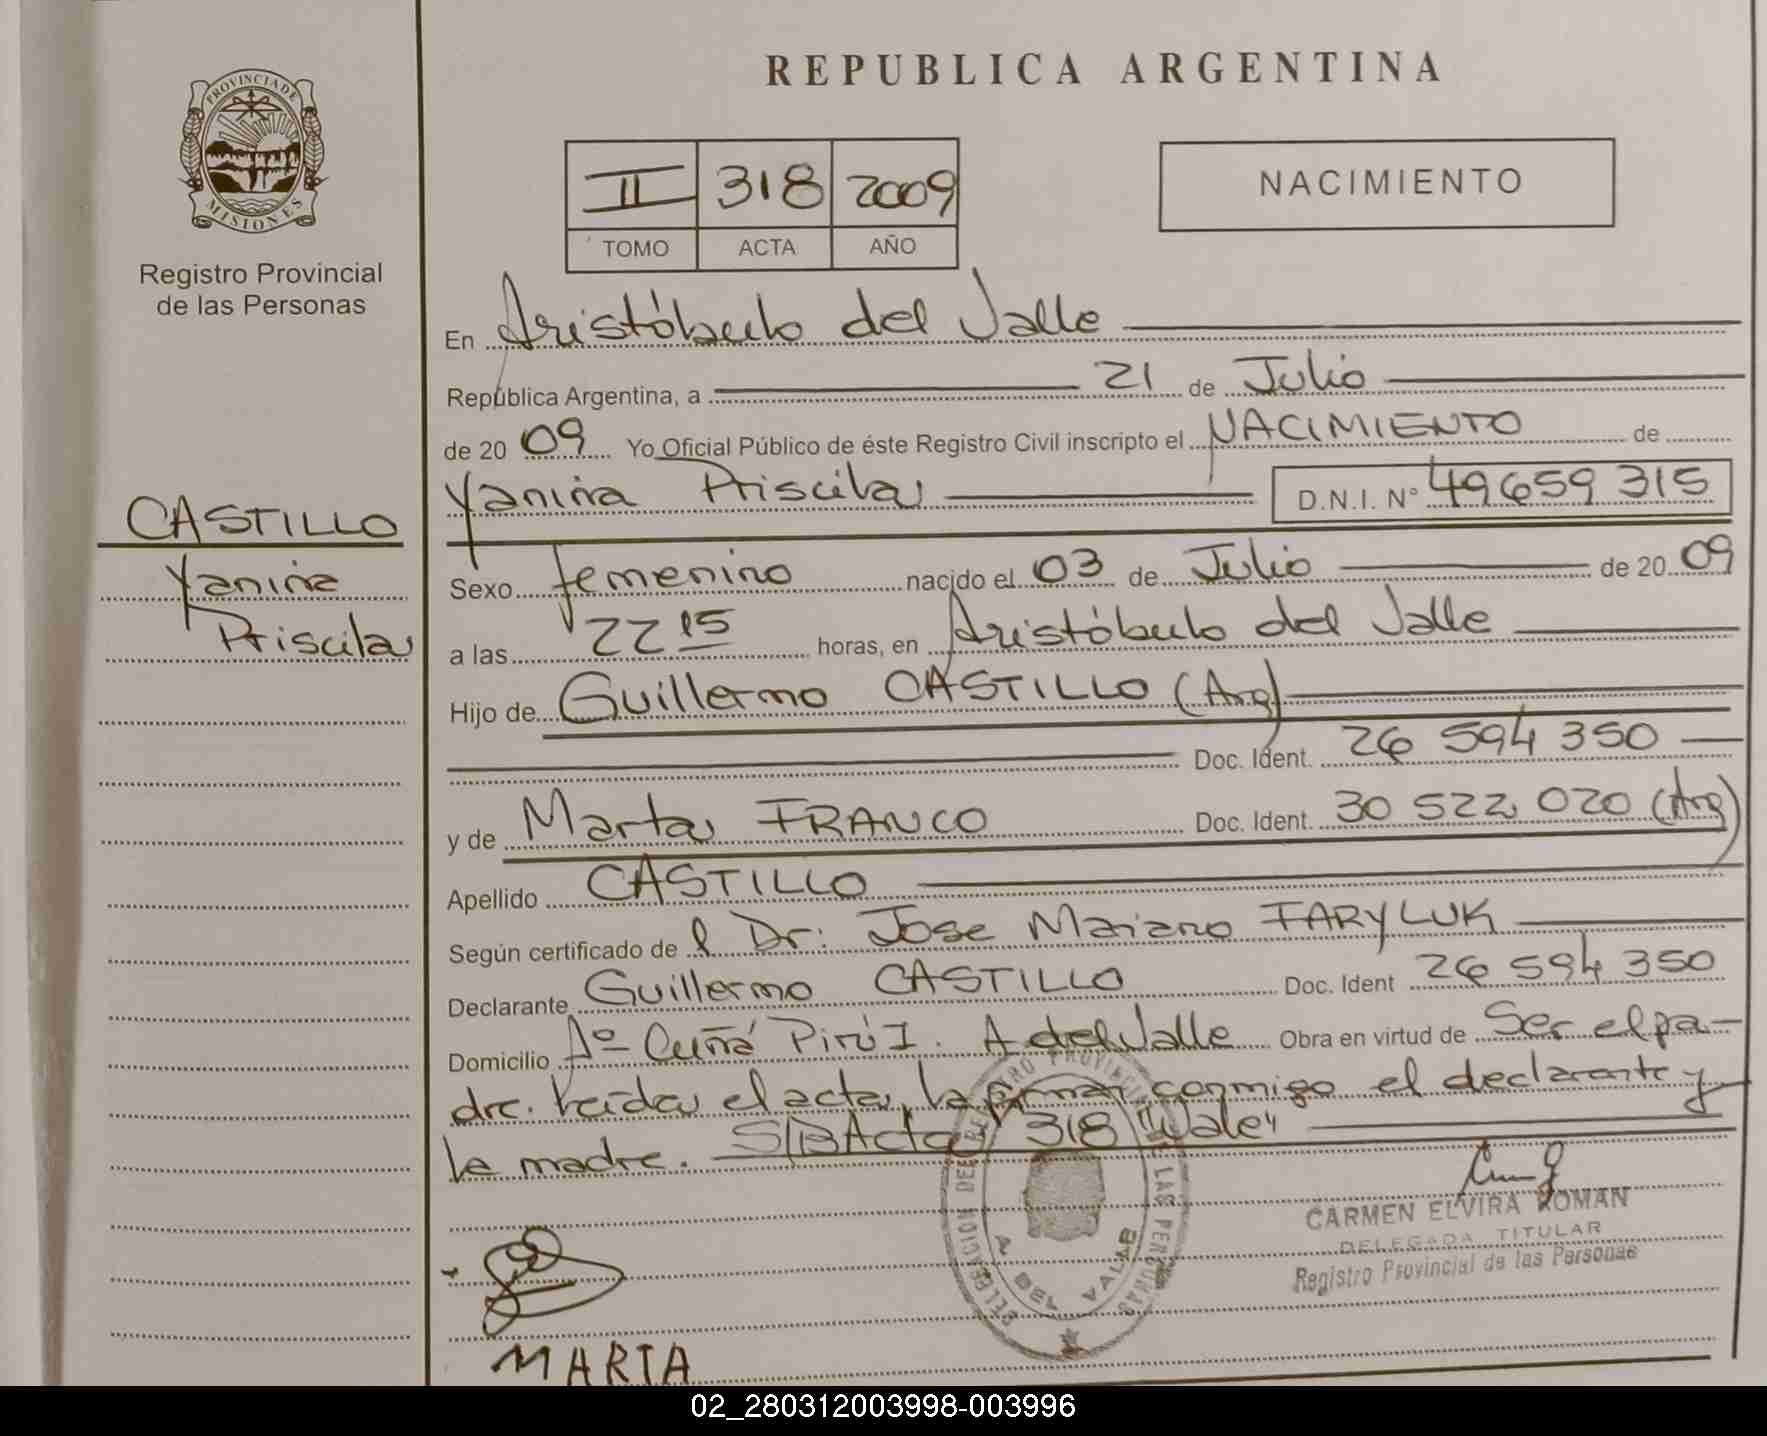 REPUBLICA ARGENTINA
PROVINCIA DE
MISIONES
Registro Provincial
de las Personas
II 318 2009
TOMO ACTA AÑO
NACIMIENTO
En Aristóbulo del Valle
República Argentina, a 21 de Julio
de 20 09 Yo Oficial Público de éste Registro Civil inscripto el NACIMIENTO de
Yanina Priscila D.N.I. N° 49659 315
CASTILLO
Yanina
Priscila
Sexo femenino nacido el 03 de Julio de 20 09
a las 22 15 horas, en Aristóbulo del Valle
Hijo de Guillermo CASTILLO (Arg)
Doc. Ident. 26 594 350
y de Marta FRANCO Doc. Ident. 30 522 020 (Arg)
Apellido CASTILLO
Según certificado de l Dr: Jose Mariano FARYLUK
Declarante Guillermo CASTILLO Doc. Ident 26 594 350
Domicilio Aº Cuñá Pirú I. A del Valle Obra en virtud de Ser el pa-
dre. Leida el acta, la firman conmigo el declarante y
la madre. S/B Acta 318 "Vale"
CARMEN ELVIRA ROMAN
DELEGADA TITULAR
Registro Provincial de las Personas
DELEGACION DEL REGISTRO PROVINCIAL DE LAS PERSONAS
A. DEL VALLE
MARTA
02_280312003998-003996